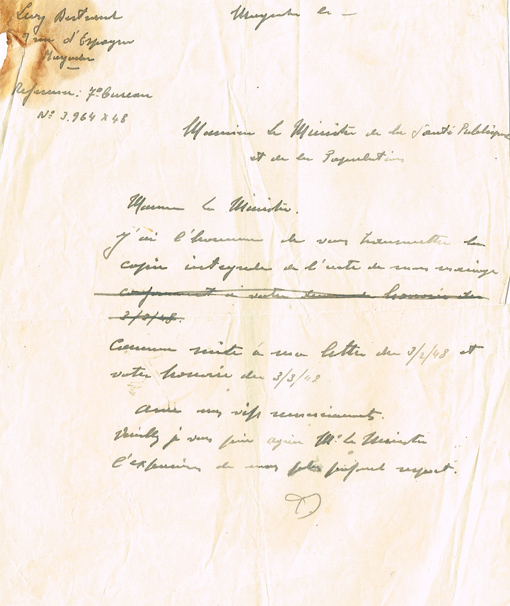 Levy Bertrand
7 rue d'Espagne
Mayotte le —
Reference: 7e Bureau
No 3.964 X 48
Monsieur le Ministre de la Santé Publique
et de la Population
Monsieur le Ministre.
j'ai l'honneur de vous transmettre la
copie intégrale de l'acte de mon mariage
conformément à votre honorée du
3/3/48.
Comme suite à ma lettre du 3/2/48 et
votre honorée du 3/3/48
Avec mes vifs remerciements.
Veuillez je vous prie agréer Mr le Ministre
l'expression de mon plus profond respect.